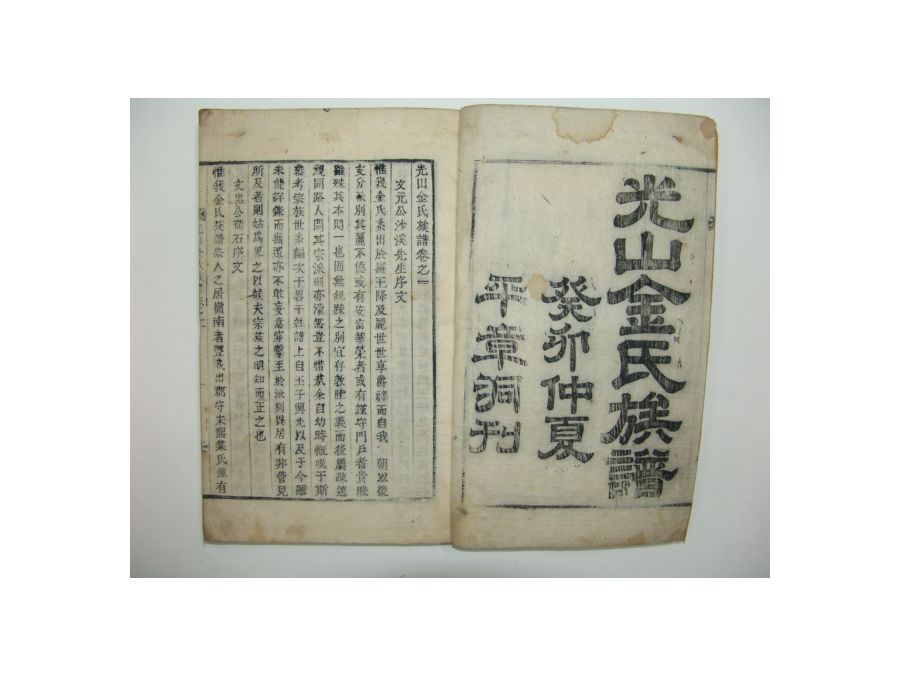 光山金氏族譜
癸卯仲夏
平章洞刊
光山金氏族譜卷之一
文元公沙溪先生序文
惟我金氏系出於羅王降及麗世世享爵祿而自我 朝以後
支分派別其麗不億或有安富華榮者或有謹守門戶者貴賤
雖殊其本則一也固無親疎之別宜存敦睦之義而後屬疎遠
視同路人問其宗派則亦濛然豈不惜哉余自幼時慨嘆于斯
參考宗族世系編次于畧干姓譜上自王子興光以及于今雖
未能詳錄而無遺亦不敢妄意穿鑿至於派別異居有非管見
所及者則姑爲畧之以竢夫宗族之明知而正之也
文忠公瑞石序文
惟我金氏族譜宗人之居嶺南者暨我出爲守宋熙業氏俱有